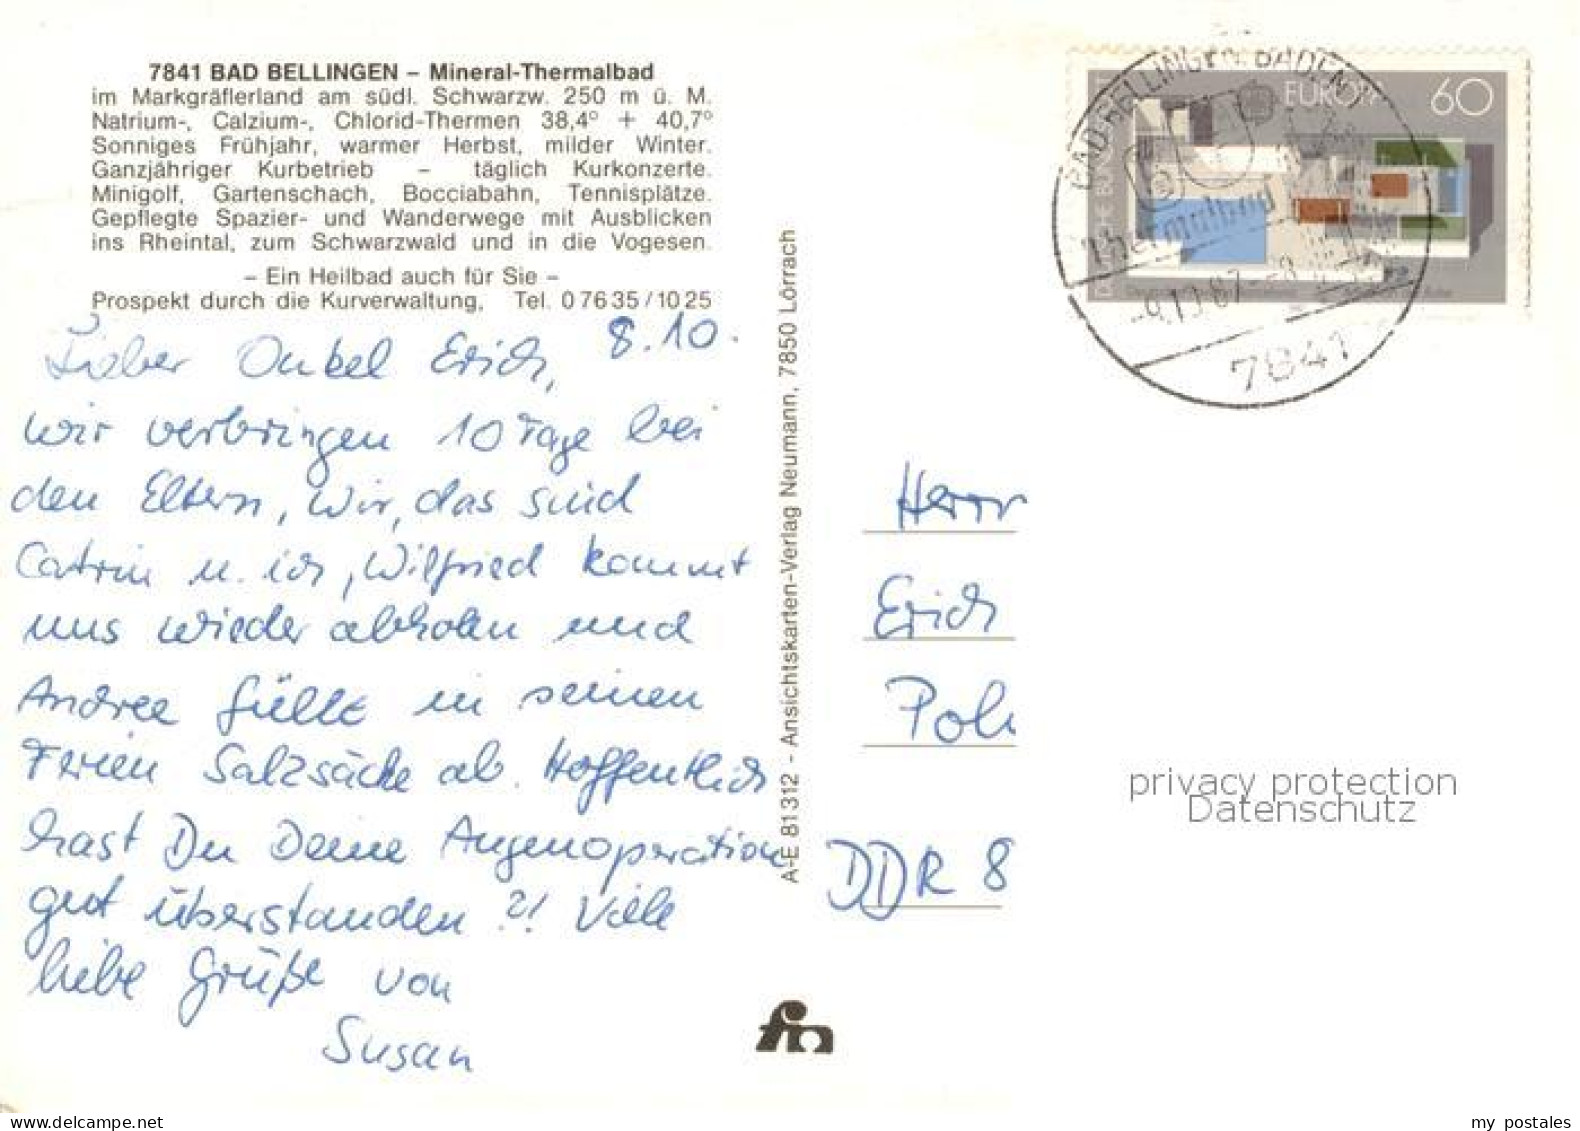 7841 BAD BELLINGEN – Mineral-Thermalbad
im Markgräflerland am südl. Schwarzw. 250 m ü. M.
Natrium-, Calzium-, Chlorid-Thermen 38,4° + 40,7°
Sonniges Frühjahr, warmer Herbst, milder Winter.
Ganzjähriger Kurbetrieb – täglich Kurkonzerte.
Minigolf, Gartenschach, Bocciabahn, Tennisplätze.
Gepflegte Spazier- und Wanderwege mit Ausblicken
ins Rheintal, zum Schwarzwald und in die Vogesen.
– Ein Heilbad auch für Sie –
Prospekt durch die Kurverwaltung, Tel. 0 76 35 / 10 25
8.10.
Lieber Onkel Erich,
wir verbringen 10 Tage bei
den Eltern, wir, das sind
Catrin u. ich, Wilfried kommt
uns wieder abholen und
Andree füllt in seinen
Ferien Salzsäcke ab. Hoffentlich
hast Du Deine Augenoperation
gut überstanden?! Viele
liebe Grüße von
Susan
A-E 81 312 - Ansichtskarten-Verlag Neumann, 7850 Lörrach
fn
EUROPA 60
BAD BELLINGEN, BADEN
Thermalbad
-9.10.87-8
7841
Herrn
Erich
Poh
DDR 8
privacy protection
Datenschutz
www.delcampe.net
my postales